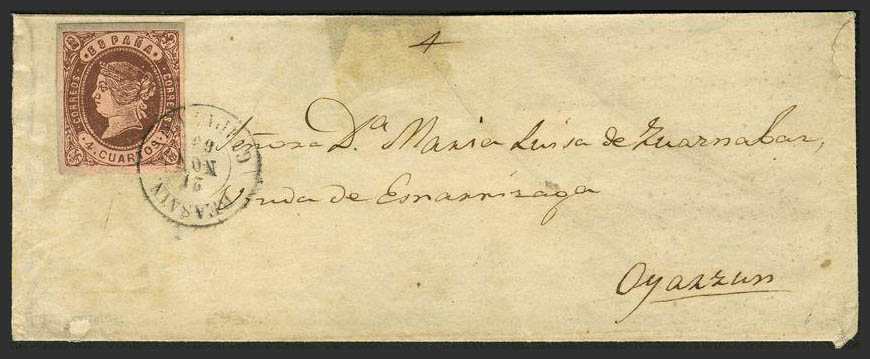 4
ESPAÑA
CORREOS CORREOS
4. CUARTOS.
21
NOV
Señora Dª Maria Luisa de Zuarnabar,
Viuda de Esnarrizaga
Oyarzun